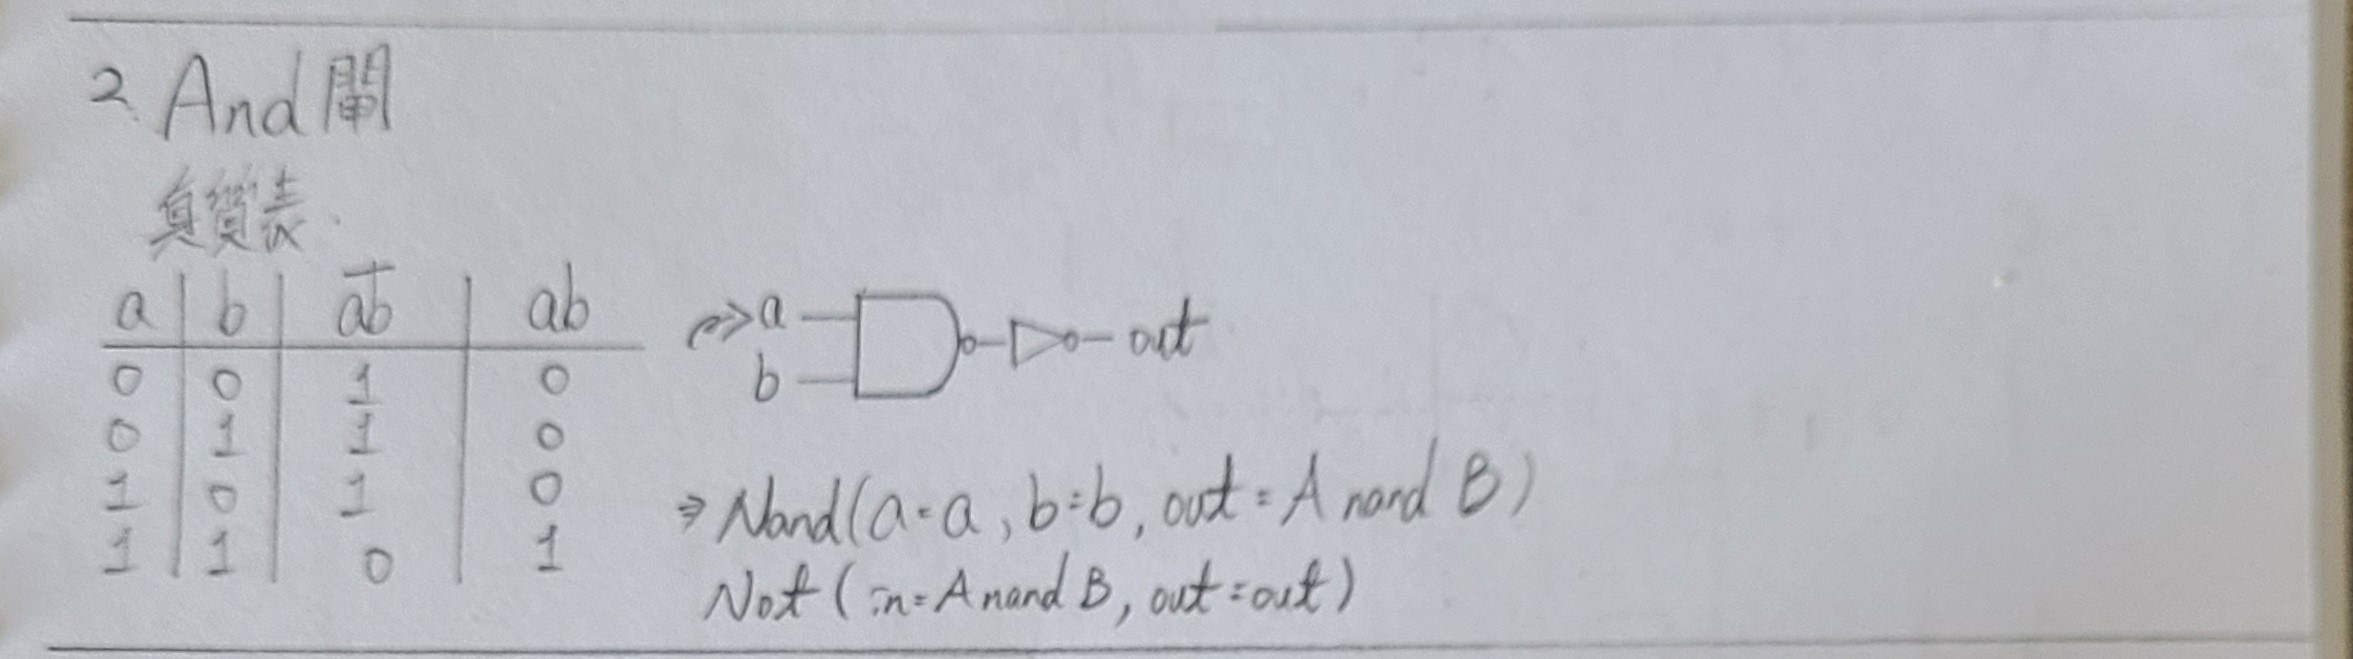 2. And閘
真質表.
a | b | \overline{ab} | ab
0 | 0 | 1 | 0
0 | 1 | 1 | 0
1 | 0 | 1 | 0
1 | 1 | 0 | 1
⇒ a
b
out
⇒ Nand(a=a, b=b, out=A nand B)
Not(in=A nand B, out=out)